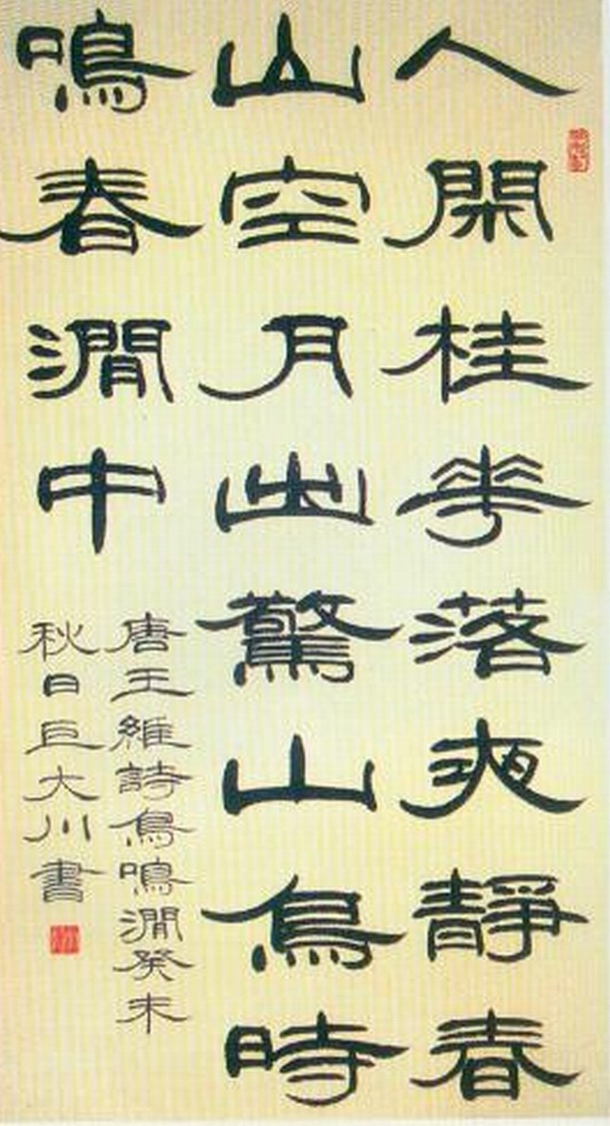 人閑桂花落夜靜春
山空月出驚山鳥時
鳴春澗中
唐王維詩鳥鳴澗癸未
秋日巨大川書